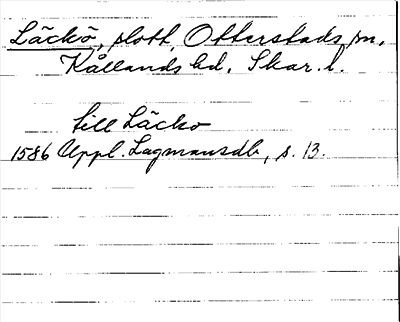 Läckö, slott, Otterstads sn,
Kållands hd, Skar. l.
till Läcko
1586 Uppl. Lagmansdb, s. 13.